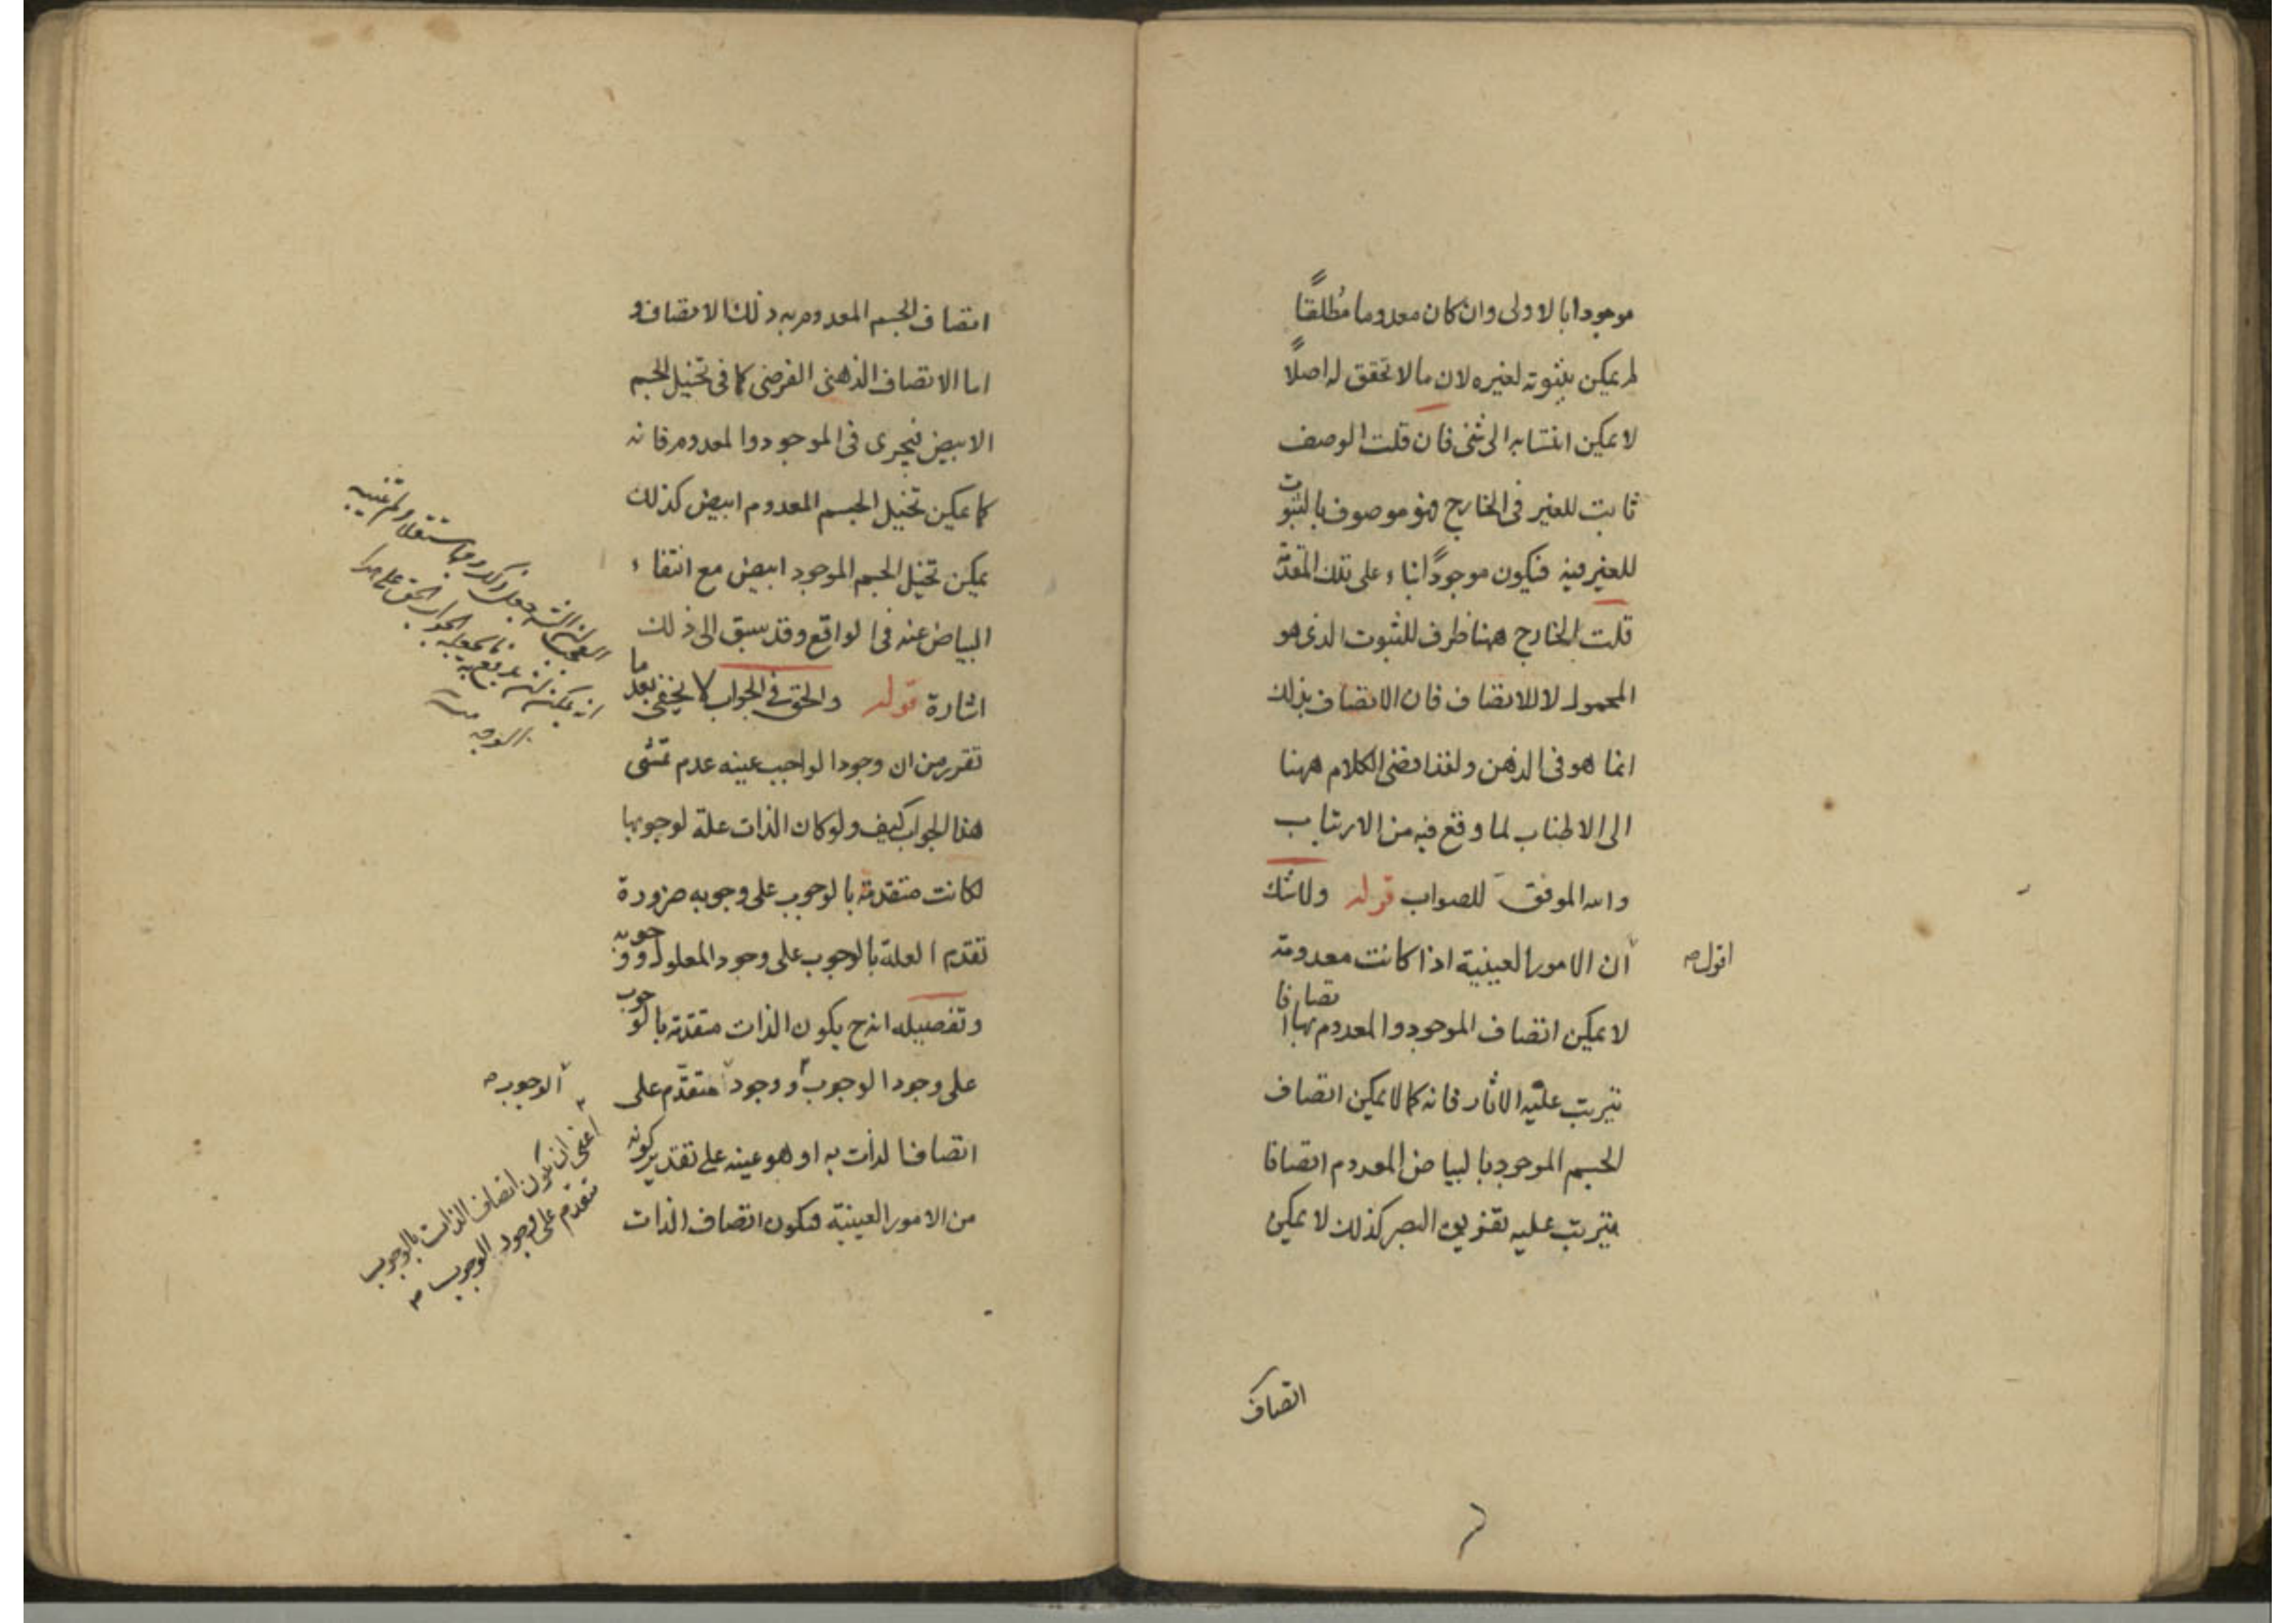 موجودا بالاولى وان كان معدوما مُطلقًا
لم يمكن بثبوته لغيره لان ما لا تحقق له اصلًا
لا يمكن انتسابه الى شئ فان قلت الوصف
ثابت للغير فى الخارج فهو موصوف بالثبوت
للغير فيه فيكون موجودًا بناء على تلك المقدّمة
قلت الخارج ههنا ظرف للثبوت الذى هو
المحمول لا للاتصاف فان الاتصاف بذلك
انما هو فى الذهن ولقد افضى الكلام ههنا
الى الاطناب لما وقع فيه من الارتياب
والله الموفق للصواب قوله ولا شك
ان الامور العينية اذا كانت معدومة
اقول صح
لا يمكن اتصاف الموجود والمعدوم بها اتصافا
يترتب عليه الاثار فانه كما لا يمكن اتصاف
الجسم الموجود بالبياض المعدوم اتصافا
يترتب عليه تفريق البصر كذلك لا يمكن
اتصاف
اتصاف الجسم المعدوم به ذلك الاتصاف و
اما الاتصاف الذهنى الفرضى كما فى تخيل الجسم
الابيض فيجرى فى الموجود والمعدوم فانه
كما يمكن تخيل الجسم المعدوم ابيض كذلك
يمكن تخيل الجسم الموجود ابيض مع انتفاء
البياض عنه فى الواقع وقد سبق الى ذلك
اشارة قوله والحق فى الجواب لا يخفى بعد ما
تقرر من ان وجود الواجب عينه عدم تمشى
هذا الجواب كيف ولو كان الذات علة لوجوبها
لكانت متقدمة بالوجوب على وجوبه ضرورة
تقدم العلة بالوجوب على وجود المعلول ووجوبه
وتفصيله انه ح يكون الذات متقدمة بالوجوب
على وجود الوجوب ووجود متقدّم على
الوجوب صح
اتصاف الذات به او هو عينه على تقدير كونه
من الامور العينية فيكون اتصاف الذات
اعنى ان يكون اتصاف الذات بالوجوب
متقدّم على وجود الوجوب